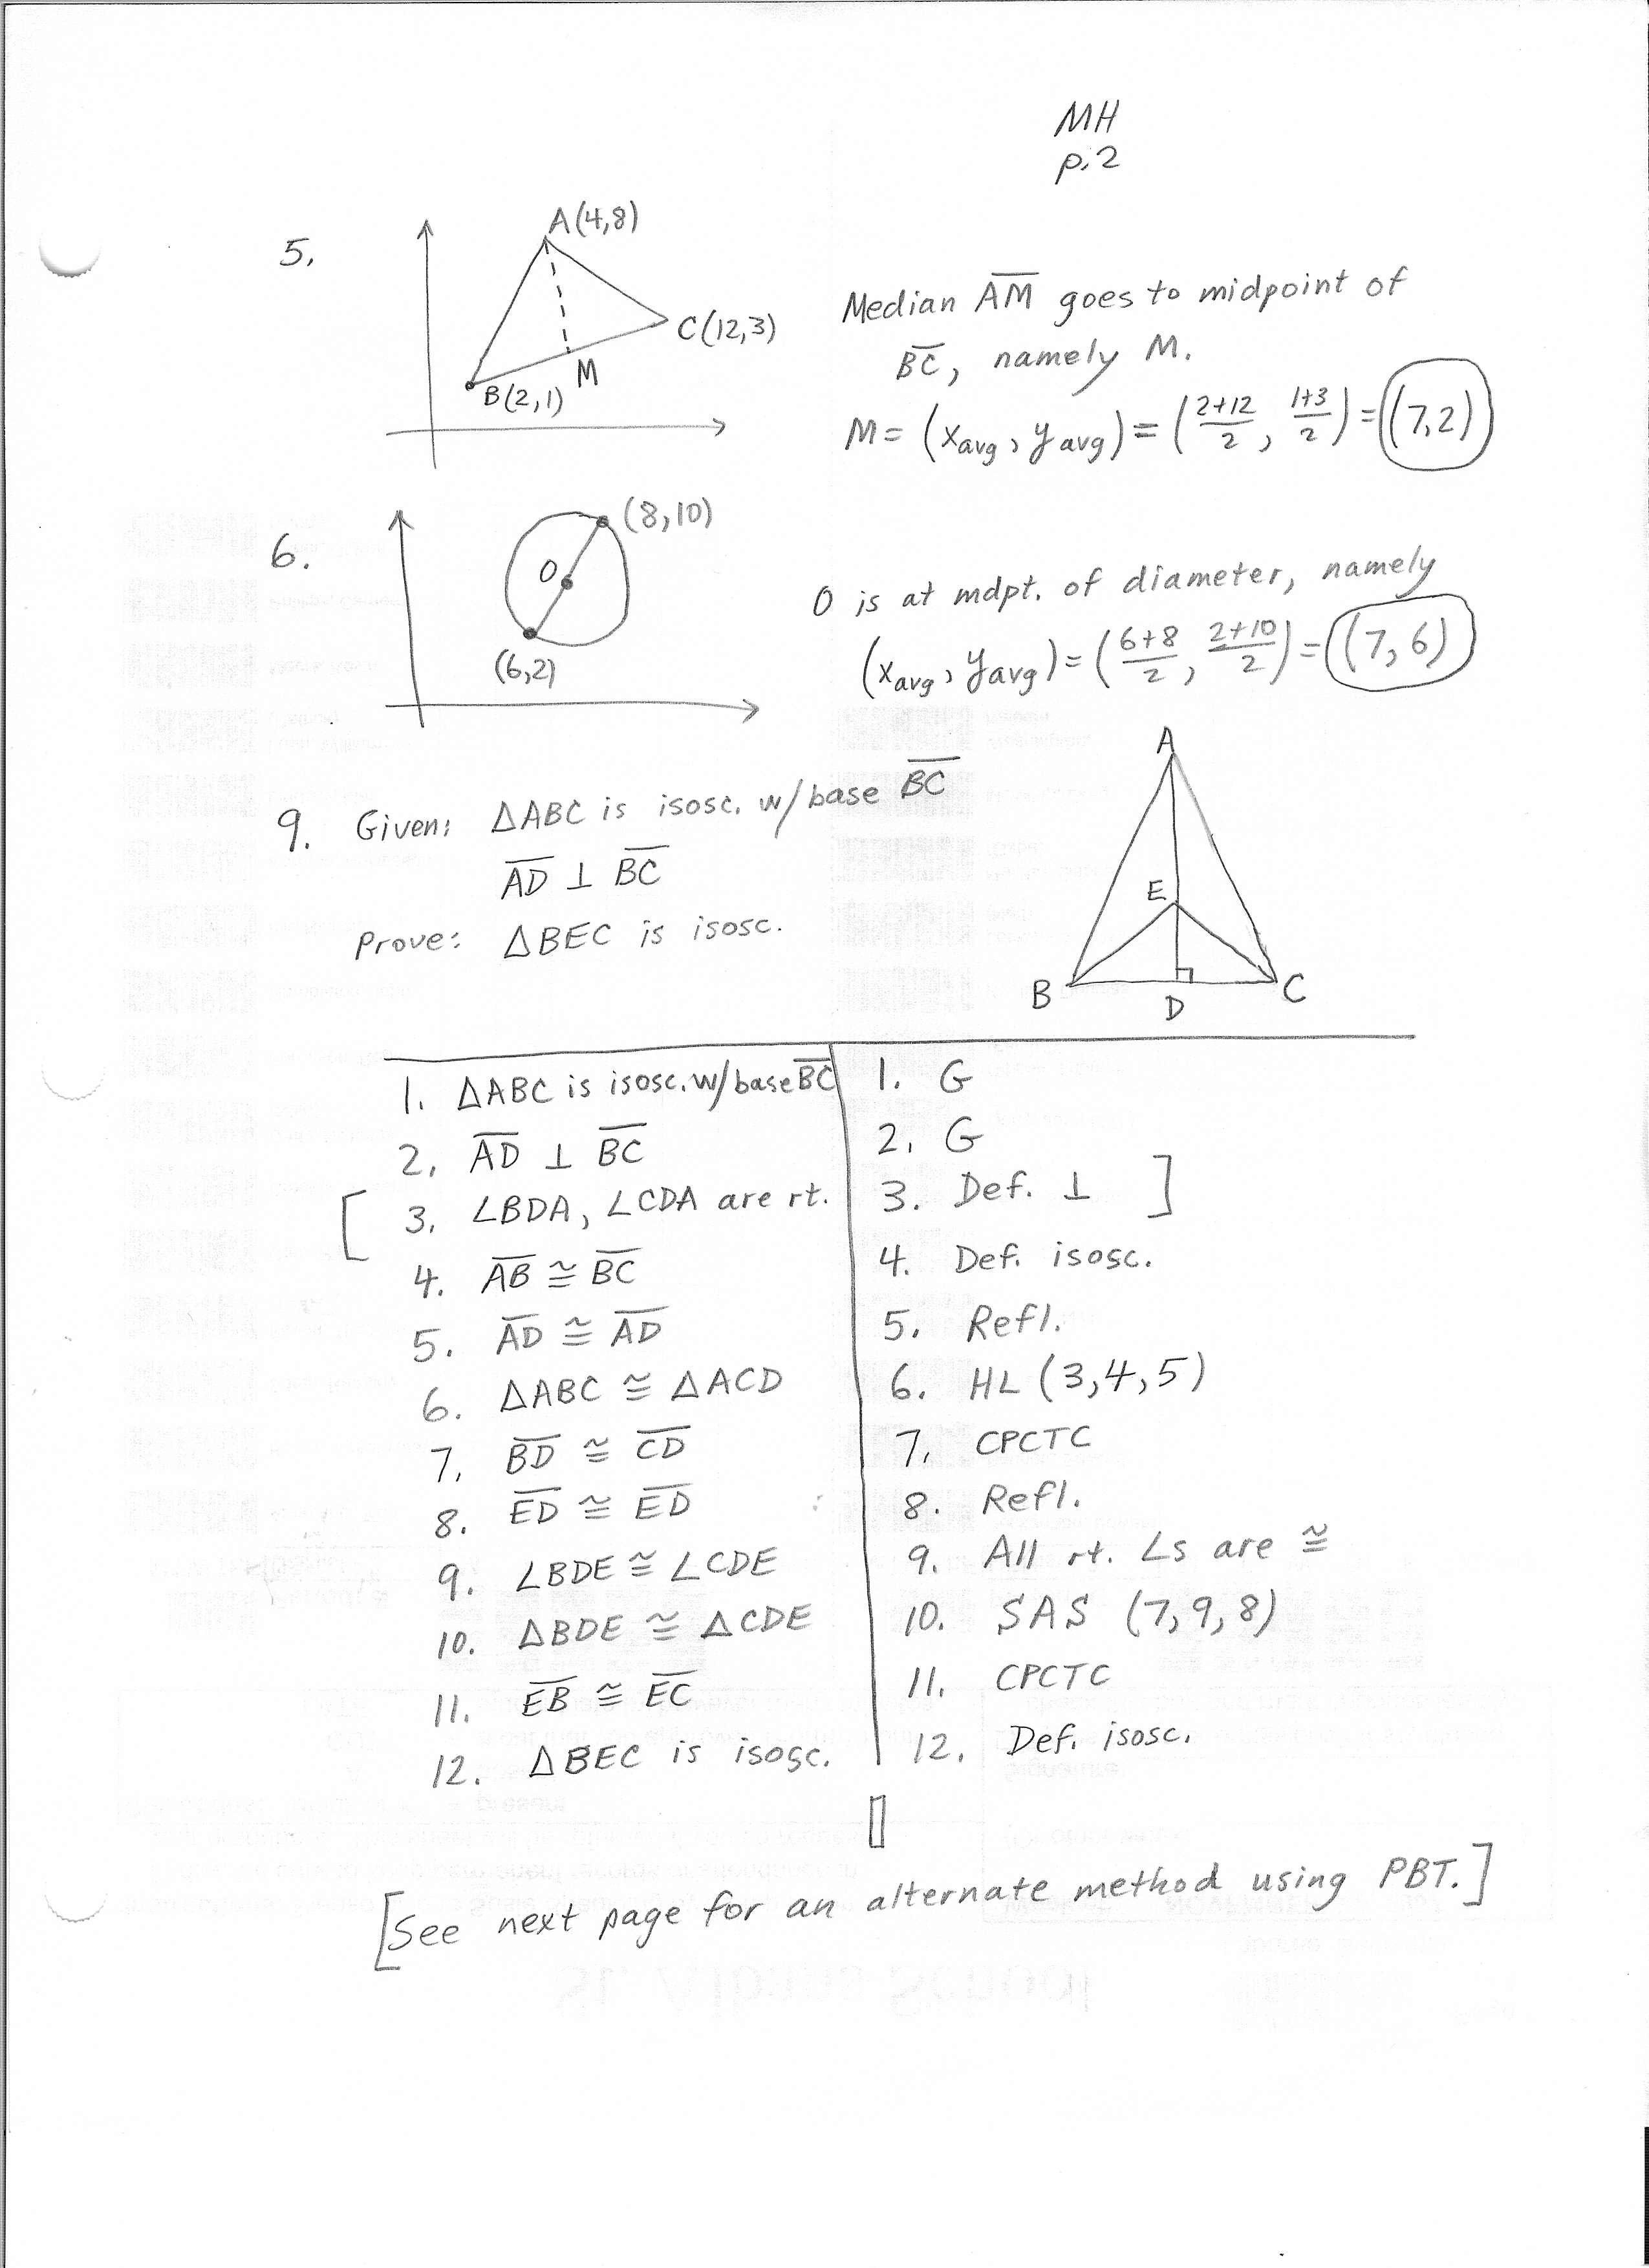 MH
p. 2
5.
A(4,8)
C(12,3)
M
B(2,1)
Median A̅M̅ goes to midpoint of
B̅C̅, namely M.
M = (x_avg, y_avg) = (2+12/2, 1+3/2) = (7,2)
6.
(8,10)
O
(6,2)
O is at mdpt. of diameter, namely
(x_avg, y_avg) = (6+8/2, 2+10/2) = (7,6)
9. Given: △ABC is isosc. w/base B̅C̅
A̅D̅ ⊥ B̅C̅
Prove: △BEC is isosc.
A
E
B
D
C
1. △ABC is isosc. w/base B̅C̅ 1. G
2. A̅D̅ ⊥ B̅C̅ 2. G
[ 3. ∠BDA, ∠CDA are rt. 3. Def. ⊥ ]
4. A̅B̅ ≅ B̅C̅ 4. Def. isosc.
5. A̅D̅ ≅ A̅D̅ 5. Refl.
6. △ABC ≅ △ACD 6. HL (3,4,5)
7. B̅D̅ ≅ C̅D̅ 7. CPCTC
8. E̅D̅ ≅ E̅D̅ 8. Refl.
9. ∠BDE ≅ ∠CDE 9. All rt. ∠s are ≅
10. △BDE ≅ △CDE 10. SAS (7,9,8)
11. E̅B̅ ≅ E̅C̅ 11. CPCTC
12. △BEC is isosc. 12. Def. isosc.
[See next page for an alternate method using PBT.]